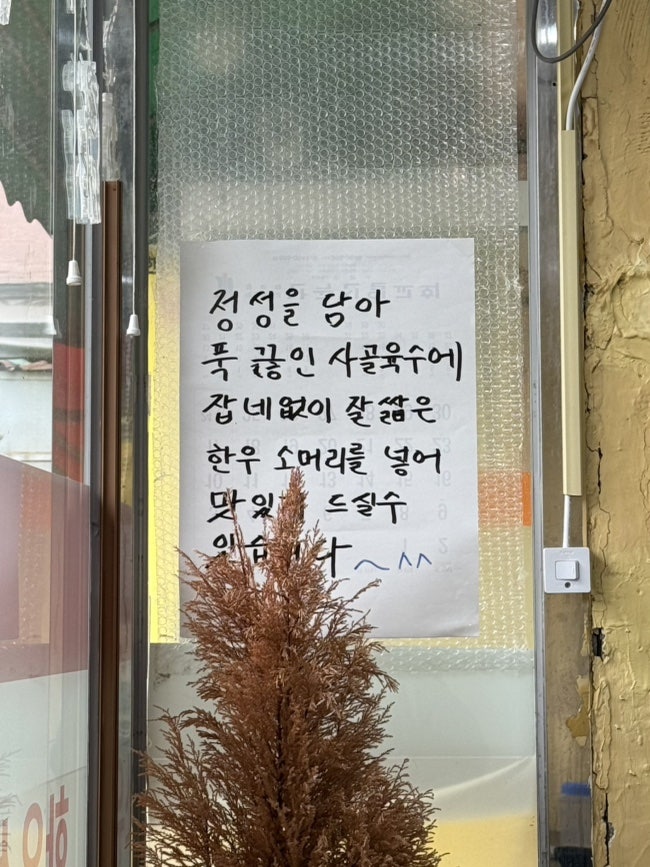 정성을 담아
푹 끓인 사골육수에
잡네없이 잘 쌂은
한우 소머리를 넣어
드실수
~^^